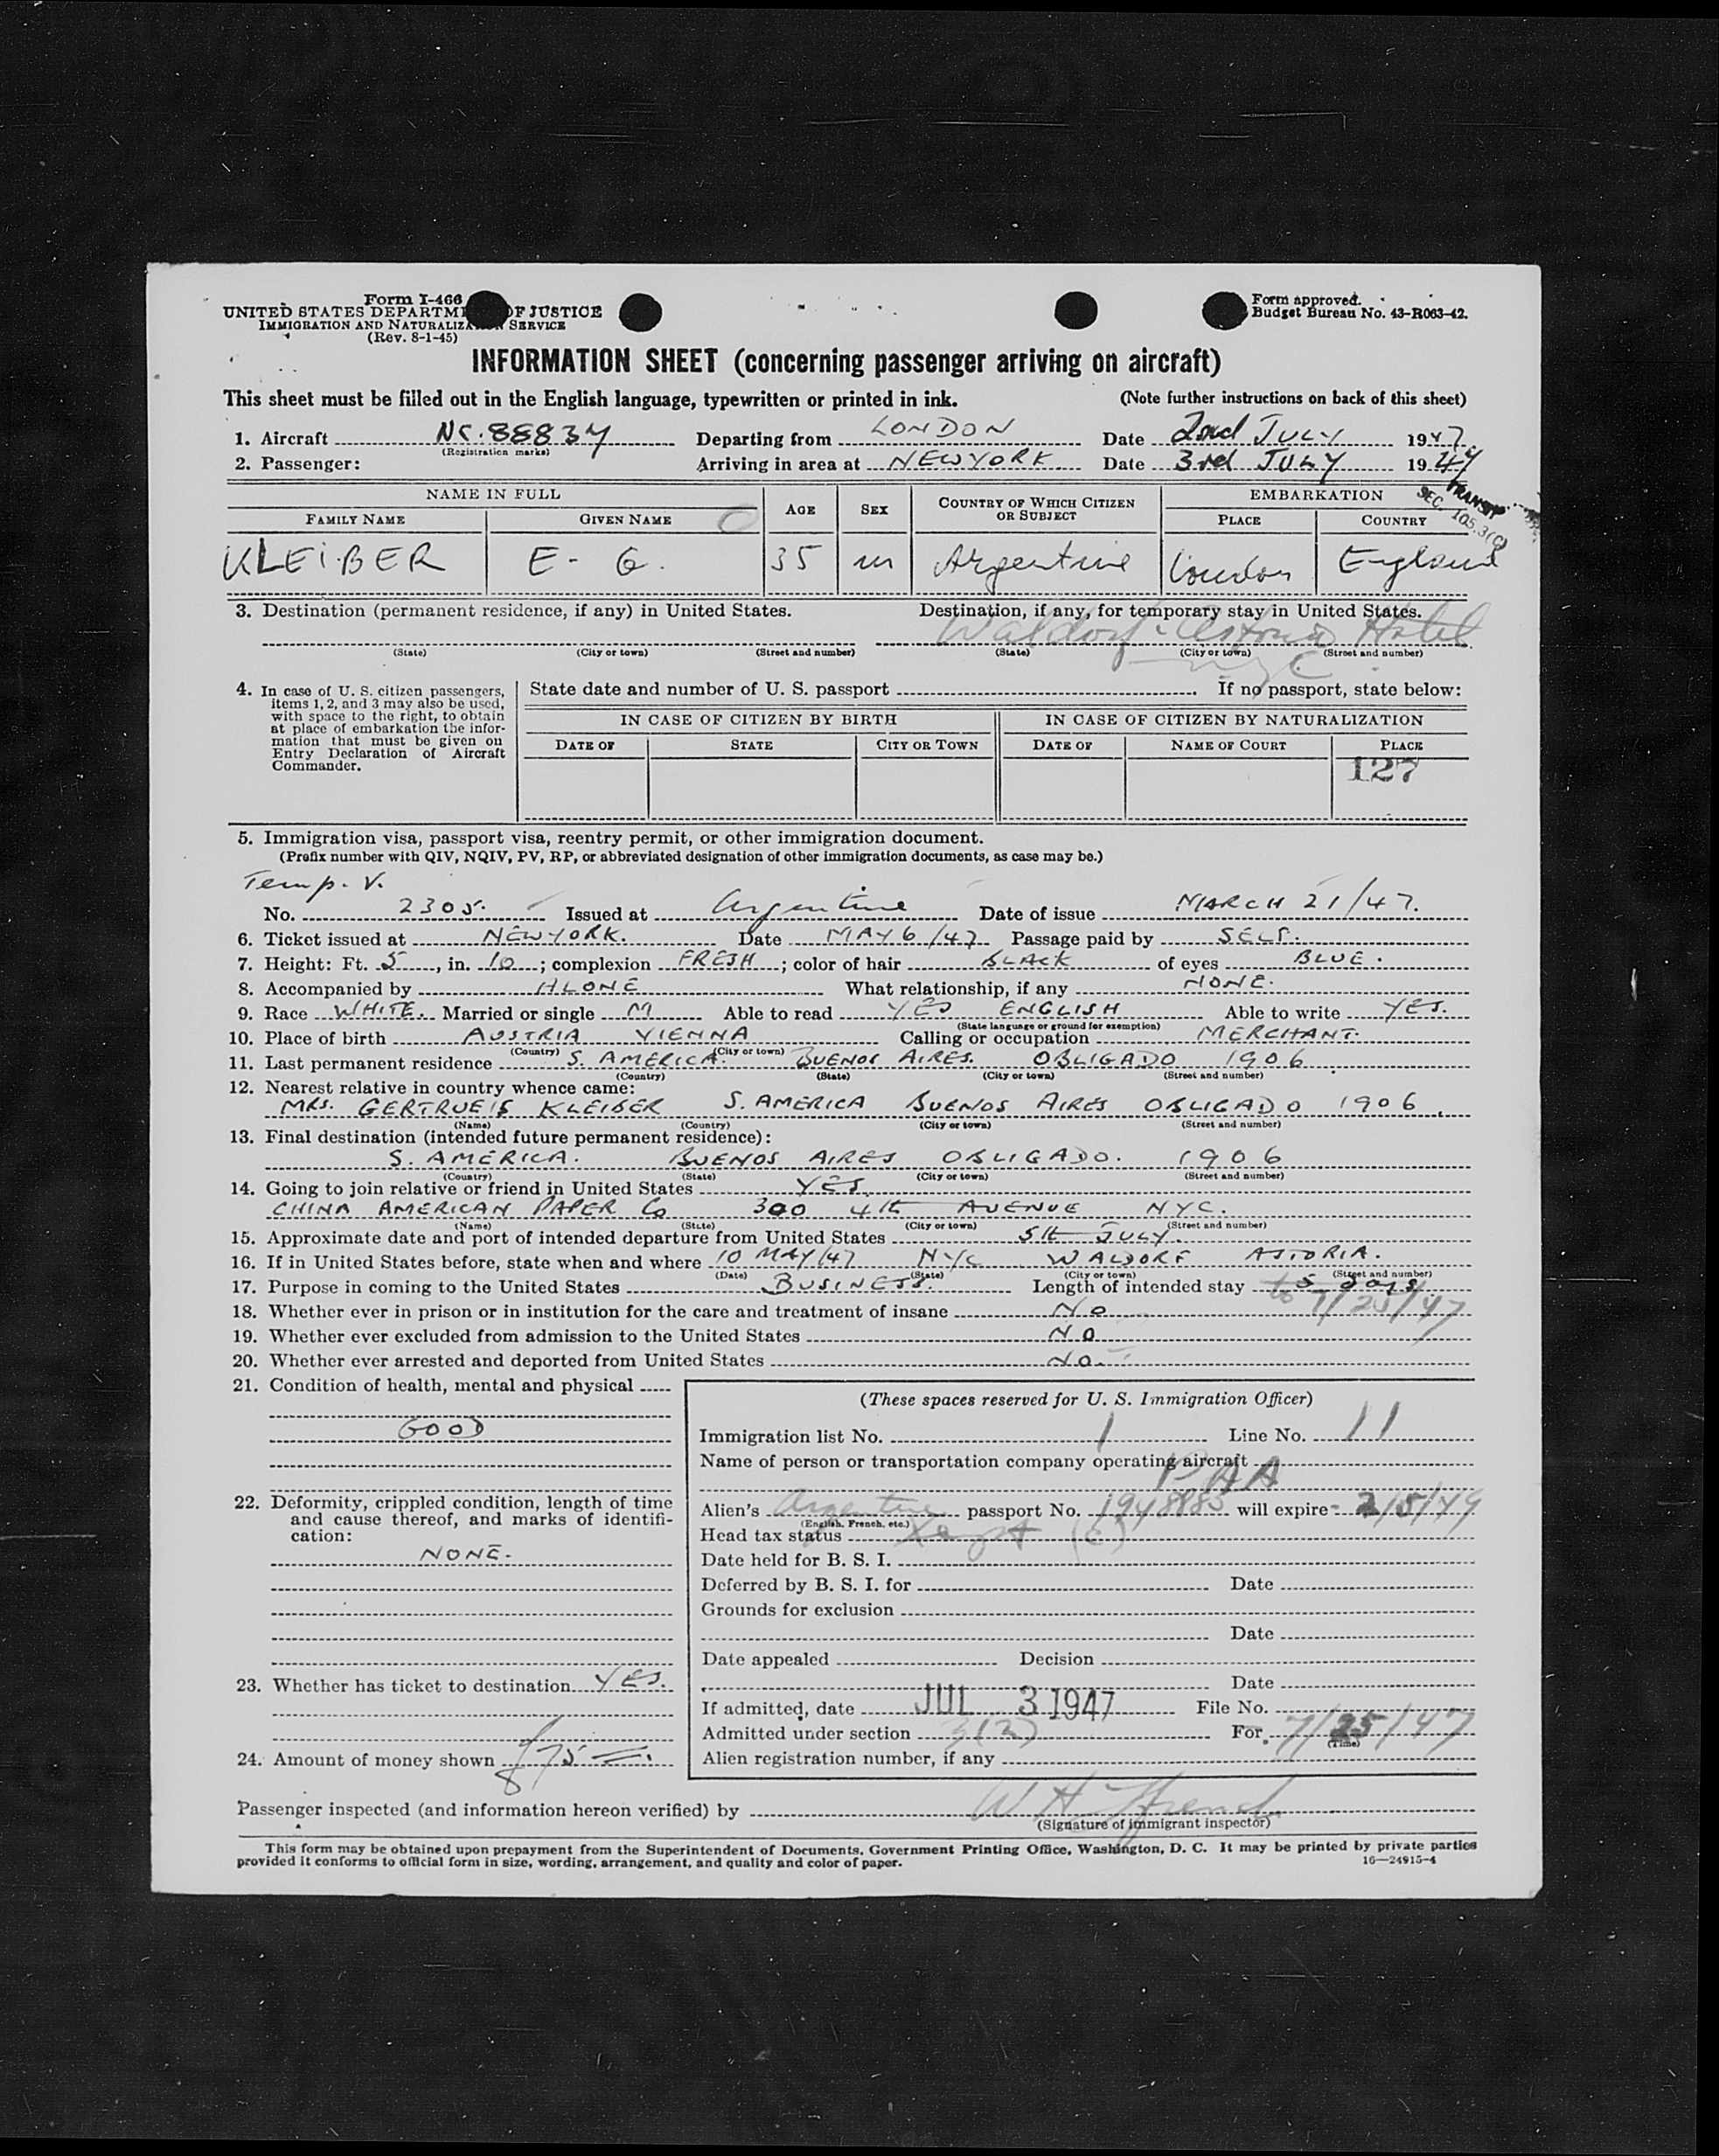 Form I-466
UNITED STATES DEPARTMENT OF JUSTICE
IMMIGRATION AND NATURALIZATION SERVICE
(Rev. 8-1-45)
Form approved.
Budget Bureau No. 43-R063-42.
INFORMATION SHEET (concerning passenger arriving on aircraft)
This sheet must be filled out in the English language, typewritten or printed in ink. (Note further instructions on back of this sheet)
1. Aircraft NC.88837 Departing from LONDON Date 2nd JULY 1947
(Registration marks)
2. Passenger: Arriving in area at NEW YORK Date 3rd JULY 1947
TRANSIT
SEC. 105.3(C)
NAME IN FULL AGE SEX COUNTRY OF WHICH CITIZEN OR SUBJECT EMBARKATION
FAMILY NAME GIVEN NAME PLACE COUNTRY
KLEIBER E - G. 35 m Argentine London England
3. Destination (permanent residence, if any) in United States. Destination, if any, for temporary stay in United States.
Waldorf-Astoria Hotel
(State) (City or town) (Street and number) (State) (City or town) (Street and number)
NYC
4. In case of U. S. citizen passengers, items 1, 2, and 3 may also be used, with space to the right, to obtain at place of embarkation the information that must be given on Entry Declaration of Aircraft Commander.
State date and number of U. S. passport If no passport, state below:
IN CASE OF CITIZEN BY BIRTH IN CASE OF CITIZEN BY NATURALIZATION
DATE OF STATE CITY OR TOWN DATE OF NAME OF COURT PLACE
127
5. Immigration visa, passport visa, reentry permit, or other immigration document.
(Prefix number with QIV, NQIV, PV, RP, or abbreviated designation of other immigration documents, as case may be.)
Temp. V.
No. 2305. Issued at Argentine Date of issue MARCH 21/47.
6. Ticket issued at NEW YORK. Date MAY 6/47 Passage paid by SELF.
7. Height: Ft. 5, in. 10; complexion FRESH; color of hair BLACK of eyes BLUE.
8. Accompanied by ALONE What relationship, if any NONE.
9. Race WHITE. Married or single M Able to read YES ENGLISH Able to write YES.
(State language or ground for exemption)
10. Place of birth AUSTRIA VIENNA Calling or occupation MERCHANT.
(Country) (City or town)
11. Last permanent residence S. AMERICA. BUENOS AIRES. OBLIGADO 1906
(Country) (State) (City or town) (Street and number)
12. Nearest relative in country whence came:
MRS. KLEIBER S. AMERICA BUENOS AIRES OBLIGADO 1906
(Name) (Country) (City or town) (Street and number)
13. Final destination (intended future permanent residence):
S. AMERICA. BUENOS AIRES OBLIGADO. 1906
(Country) (State) (City or town) (Street and number)
14. Going to join relative or friend in United States YES.
CHINA AMERICAN PAPER Co 300 4th AVENUE NYC.
(Name) (State) (City or town) (Street and number)
15. Approximate date and port of intended departure from United States 5th JULY.
16. If in United States before, state when and where 10 MAY/47 NYC WALDORF ASTORIA.
(Date) (State) (City or town) (Street and number)
17. Purpose in coming to the United States BUSINESS. Length of intended stay 5 days
to 7/25/47
18. Whether ever in prison or in institution for the care and treatment of insane No
19. Whether ever excluded from admission to the United States NO
20. Whether ever arrested and deported from United States No.
21. Condition of health, mental and physical
GOOD
22. Deformity, crippled condition, length of time and cause thereof, and marks of identification:
NONE.
23. Whether has ticket to destination YES.
24. Amount of money shown $75
(These spaces reserved for U. S. Immigration Officer)
Immigration list No. 1 Line No. 11
Name of person or transportation company operating aircraft
PAA
Alien's Argentine passport No. 1948885 will expire 2/5/49
(English, French, etc.)
Head tax status (C)
Date held for B. S. I.
Deferred by B. S. I. for Date
Grounds for exclusion
Date
Date appealed Decision
Date
If admitted, date JUL 3 1947 File No.
Admitted under section 3(2) For 7/25/47
(Time)
Alien registration number, if any
Passenger inspected (and information hereon verified) by W H
(Signature of immigrant inspector)
This form may be obtained upon prepayment from the Superintendent of Documents, Government Printing Office, Washington, D. C. It may be printed by private parties
provided it conforms to official form in size, wording, arrangement, and quality and color of paper. 16—24915-4